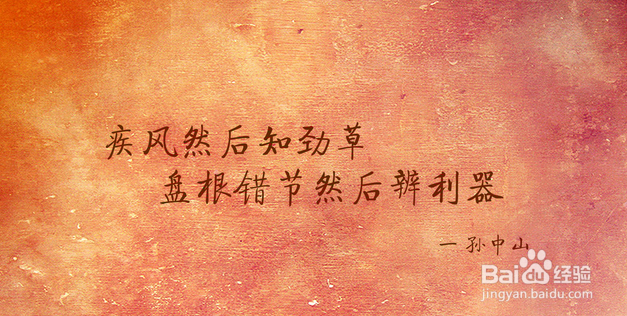 疾风然后知劲草
盘根错节然后辨利器
一孙中山
Baidu经验
jingyan.baidu.com